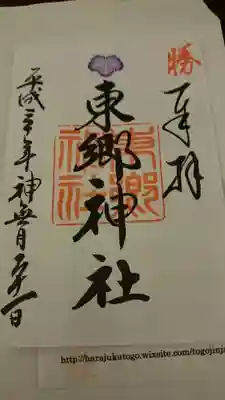 勝
奉拝
東郷神社
東郷神社
平成三十年神無月二十一日
http://harajukutogo.wixsite.com/togojinja